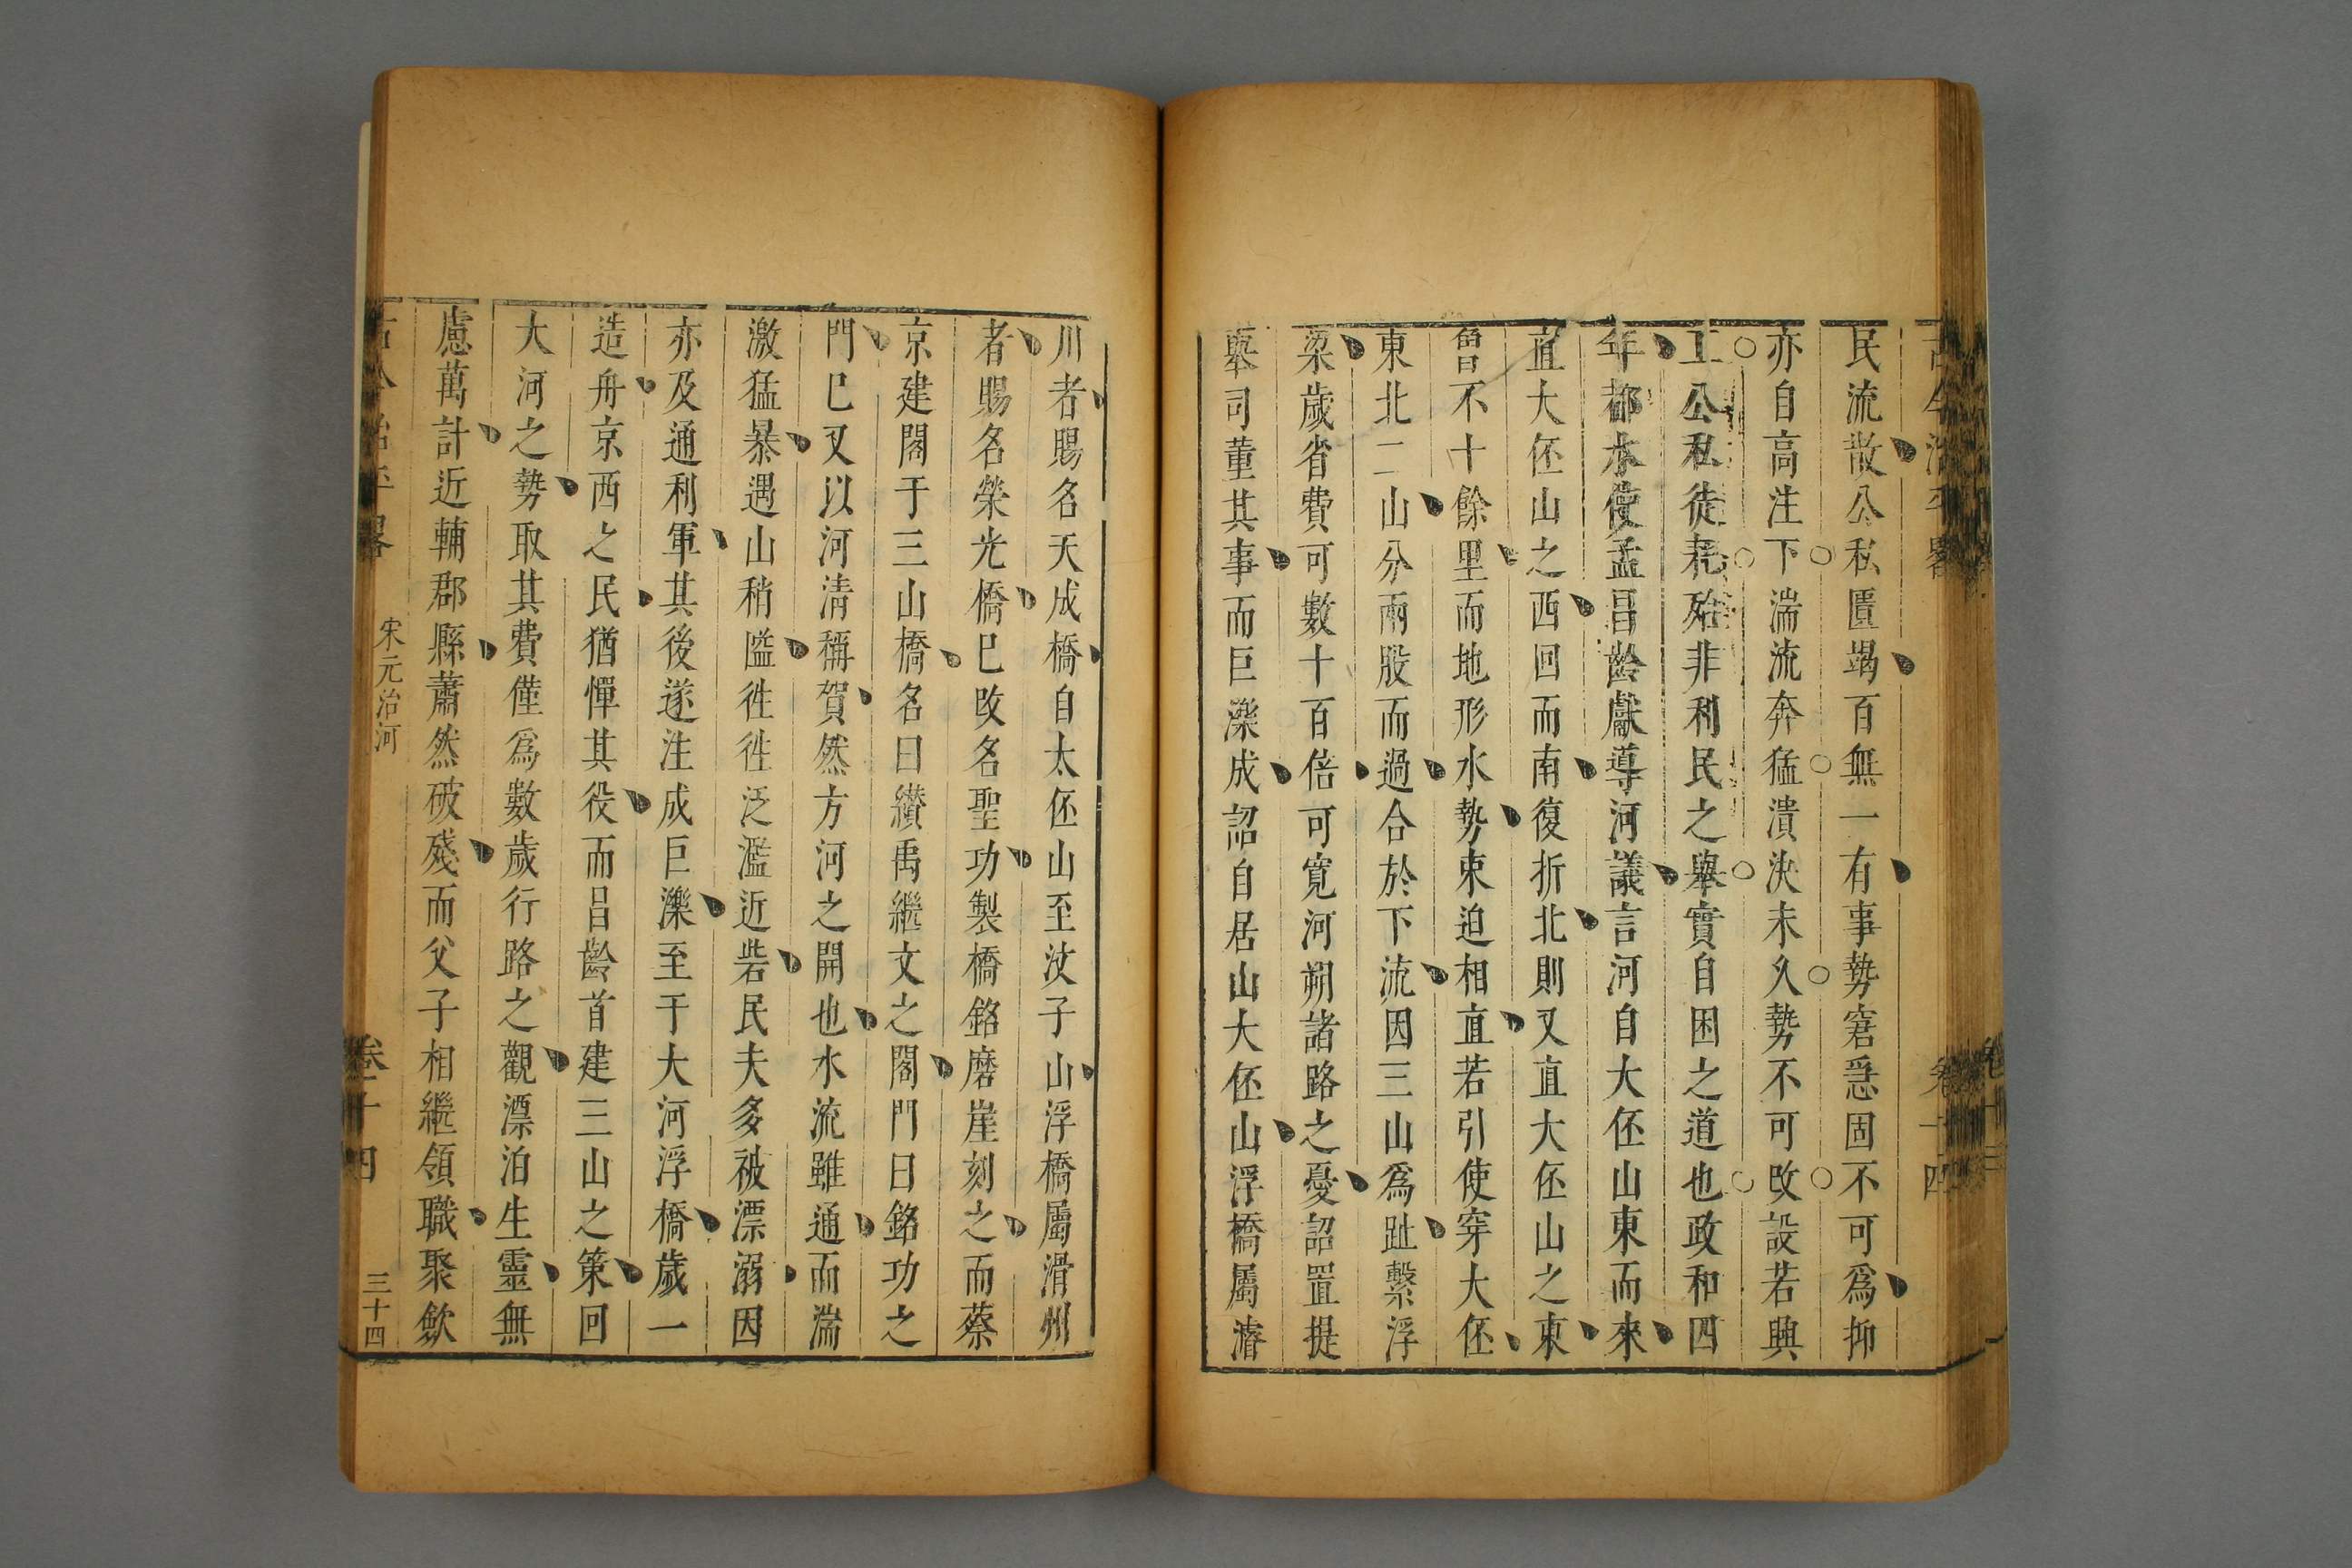 古今治平畧 卷十四
民流散公私匱竭百無一有事勢窘急固不可爲抑
亦自高注下湍流奔猛潰決未久勢不可改設若興
工公私徒耗殆非利民之舉實自困之道也政和四
年都水使孟昌齡獻導河議言河自大伾山東而來
直大伾山之西回而南復折北則又直大伾山之東
曾不十餘里而地形水勢東迫相直若引使穿大伾
東北二山分兩股而過合於下流因三山爲趾繫浮
梁歲省費可數十百倍可寬河朔諸路之憂詔置提
舉司董其事而巨濼成詔自居山大伾山浮橋屬濬
川者賜名天成橋自太伾山至汶子山浮橋屬滑州
者賜名榮光橋巳改名聖功製橋銘磨崖刻之而蔡
京建閣于三山橋名曰纘禹繼文之閣門曰銘功之
門巳又以河清稱賀然方河之開也水流雖通而湍
激猛暴遇山稍隘徃徃泛濫近砦民夫多被漂溺因
亦及通利軍其後遂注成巨濼至于大河浮橋歲一
造舟京西之民猶憚其役而昌齡首建三山之策回
大河之勢取其費僅爲數歲行路之觀漂泊生靈無
慮萬計近輔郡縣蕭然破殘而父子相繼領職聚歛
古今治平畧 宋元治河 卷十四 三十四